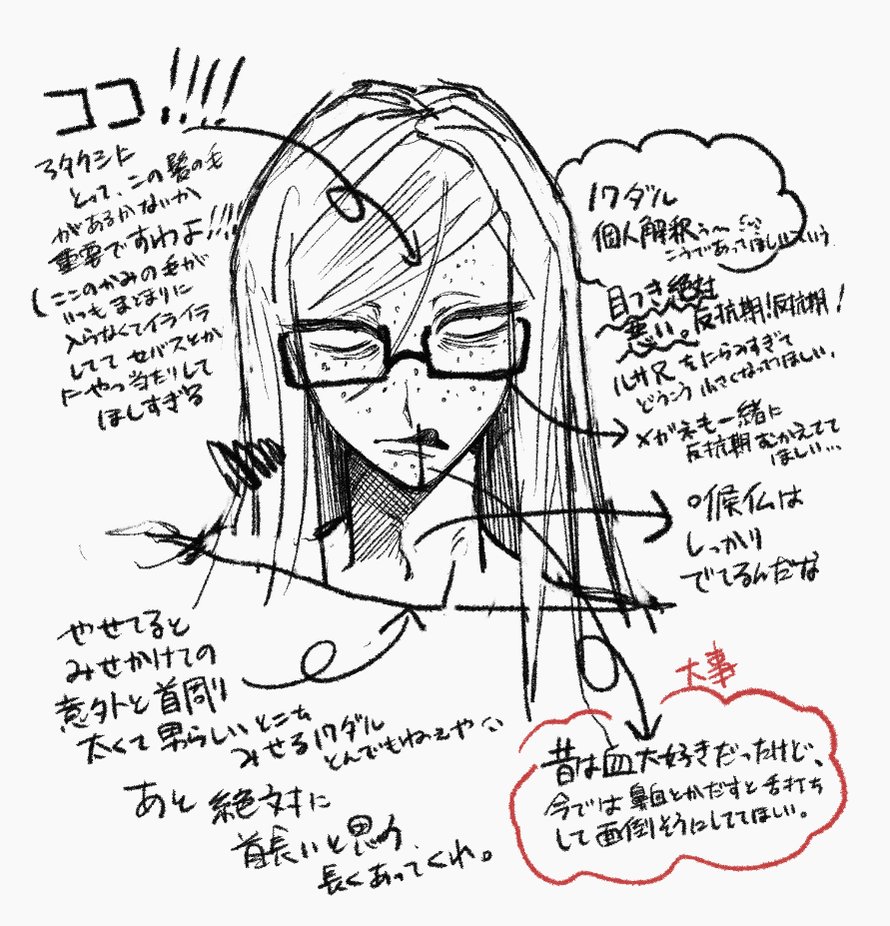 ココ!!!!
ワタクシに
とって、この髪の毛
があるかないか
重要ですわよ!!!!
(ここのかみの毛が
いつもまとまりに
入らなくてイライラ
してて セバスとか
にやつ当たりして
ほしすぎる
17ダル
個人解釈ぅ〜
こうであってほしいという
目つき絶対
悪い。反抗期!反抗期!
ルサ尺をにらみすぎて
どうこう小さくなっててほしい。
メガネも一緒に
反抗期むかえてて
ほしい…
候仏は
しっかり
でてるんだな
やせてると
みせかけての
意外と首周り
太くて男らしいとこも
みせる17ダル
とんでもねえや
あと 絶対に
首長いと思う、
長くあってくれ。
大事
昔は血大好きだったけど、
今では鼻血とかだすと舌打ち
して面倒そうにしててほしい。